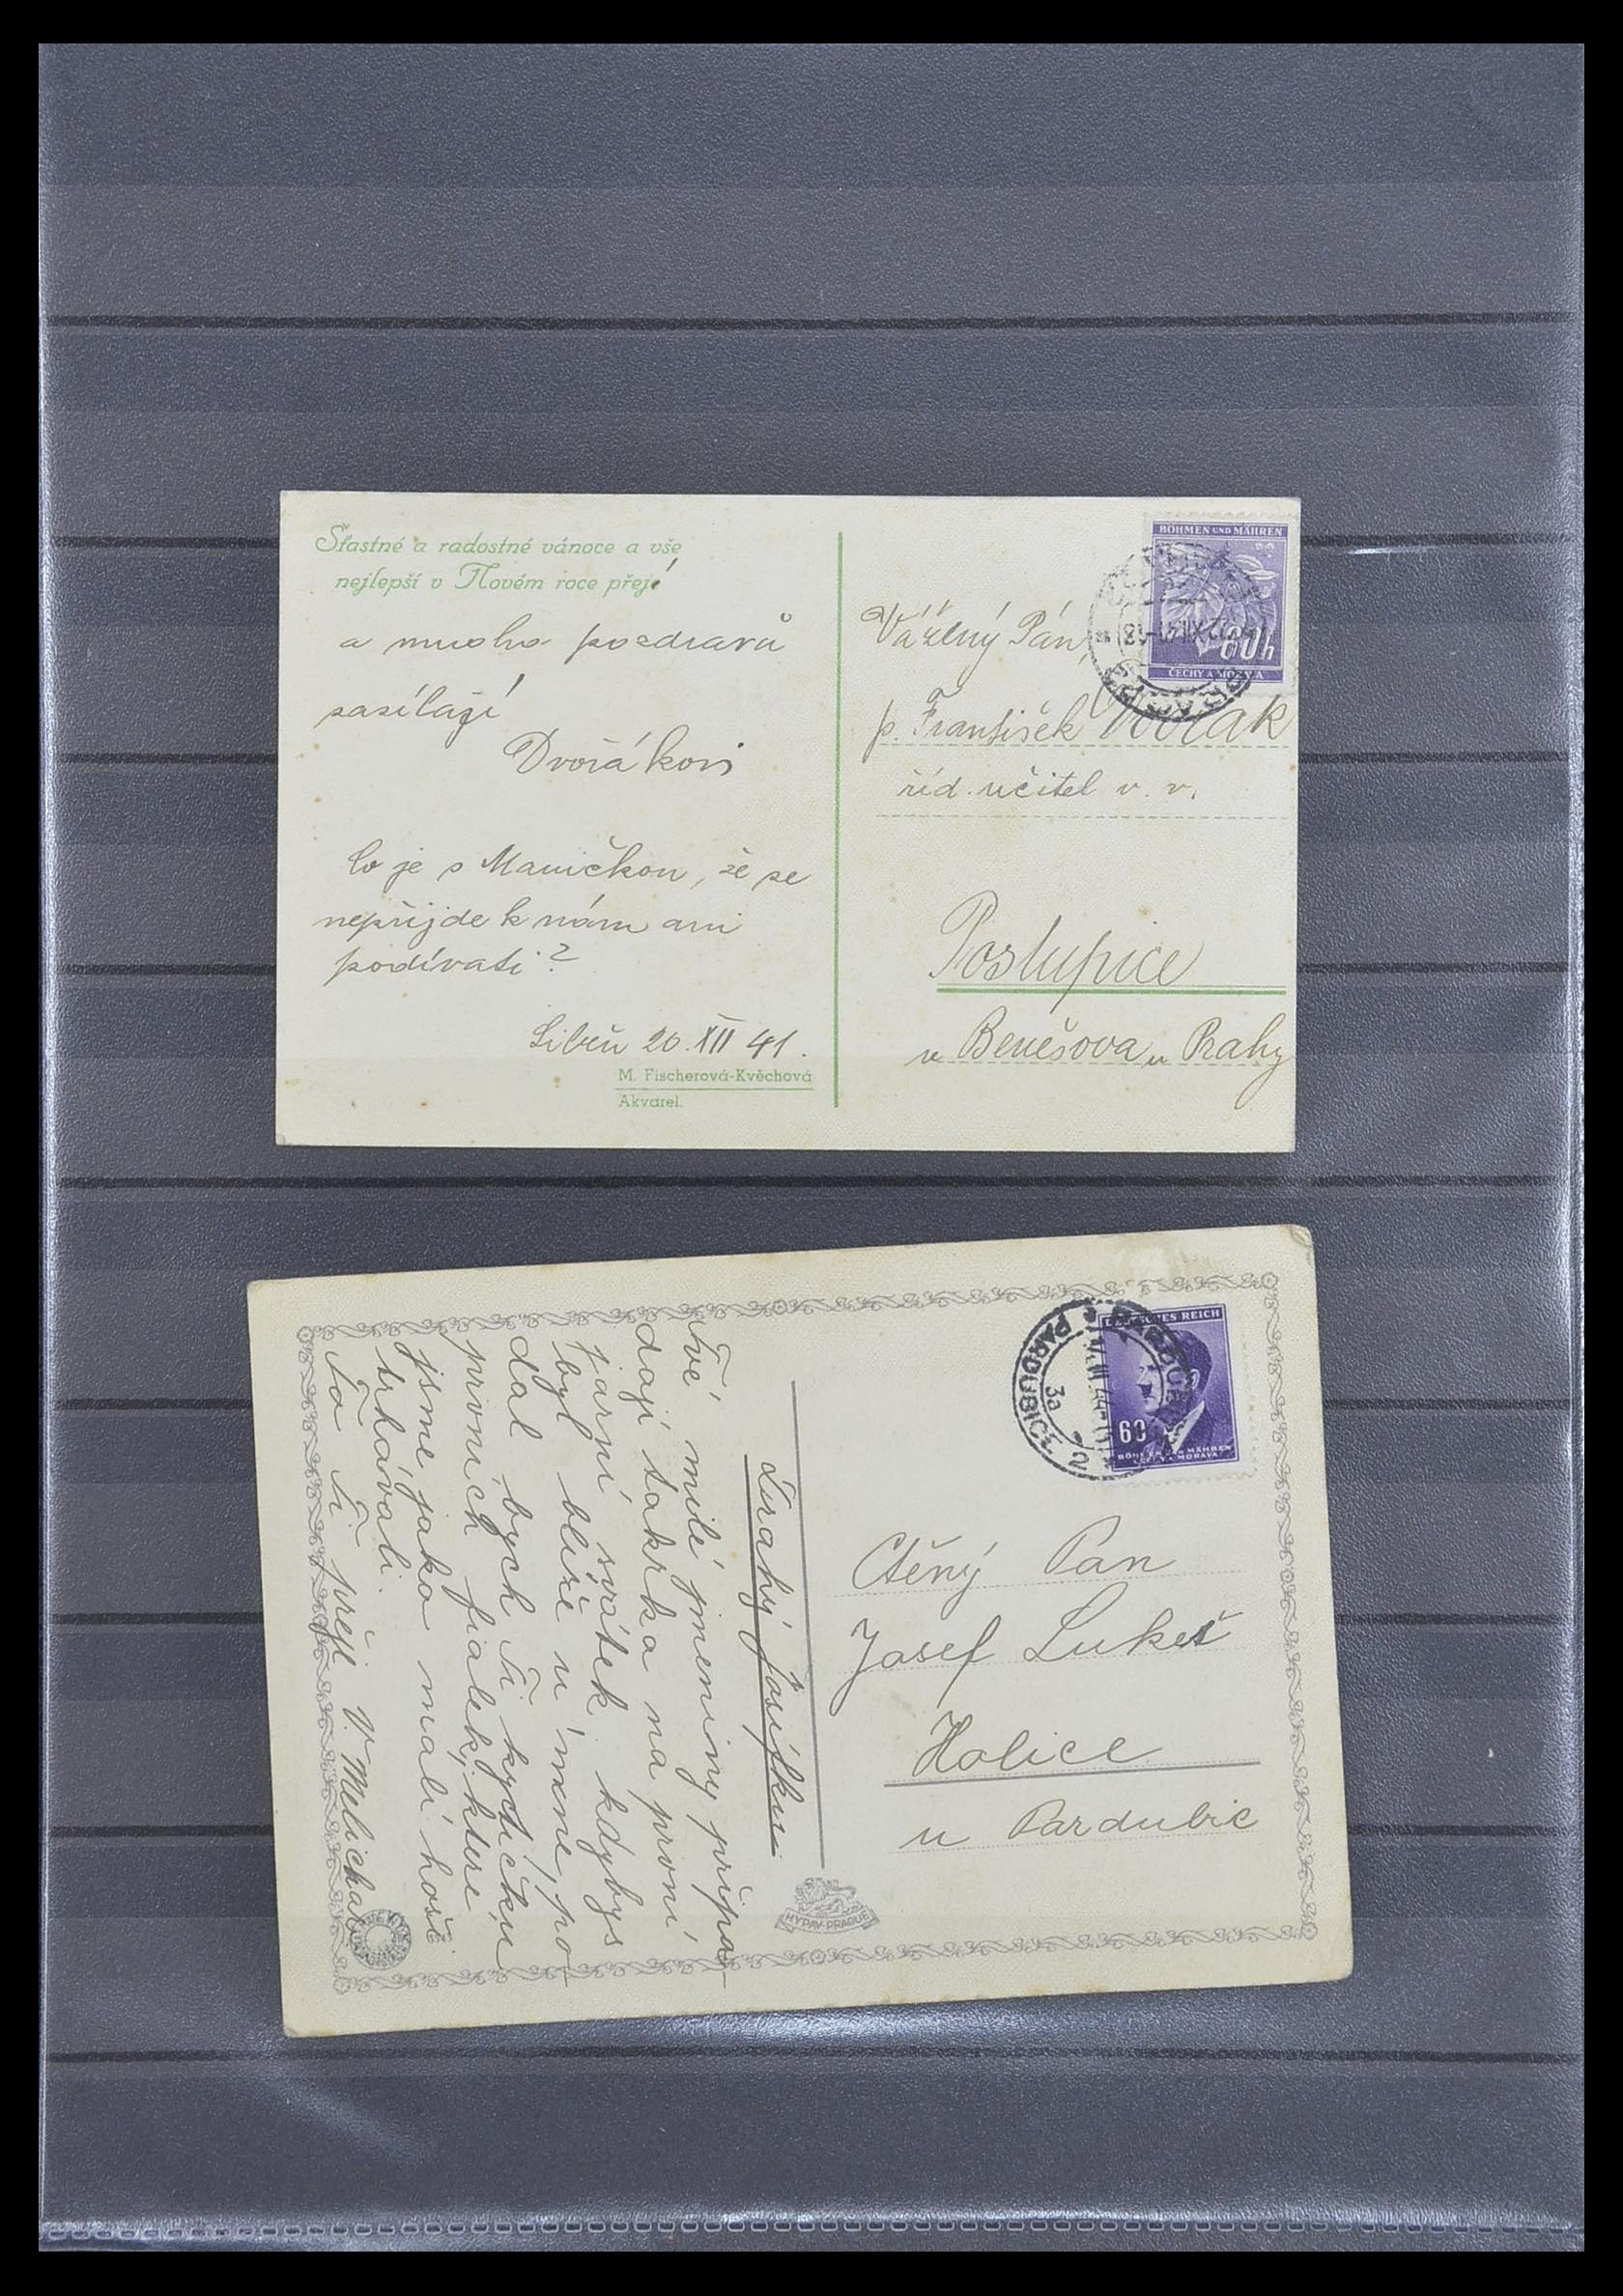 Šťastné a radostné vánoce a vše
nejlepší v Novém roce přejí
a mnoho pozdravů
zasílají
Dvořákovi
Co je s Maničkou, že se
nepřijde k nám ani
podívati?
20. XII 41.
M. Fischerová-Kvěchová
Akvarel.
BÖHMEN UND MÄHREN
60h
ČECHY A MORAVA
Vážený Pán,
p. František
říd. učitel v. v.
Postupice
u Benešova u Prahy
Drahý Josífku
Tvé milé jmeniny připa-
dají takřka na první
jarní svátek. kdybys
byl blíže u mne, po-
dal bych Ti kytičku
prvních fialek, které
jsme jako malí hoši
trhávali.
To Ti přeje V. Melichar
DEUTSCHES REICH
60
BÖHMEN U. MÄHREN
ČECHY A MORAVA
PARDUBICE 2
3a
Ctěný Pan
Josef Lukeš
Holice
u Pardubic
HYPAV-PRAGUE